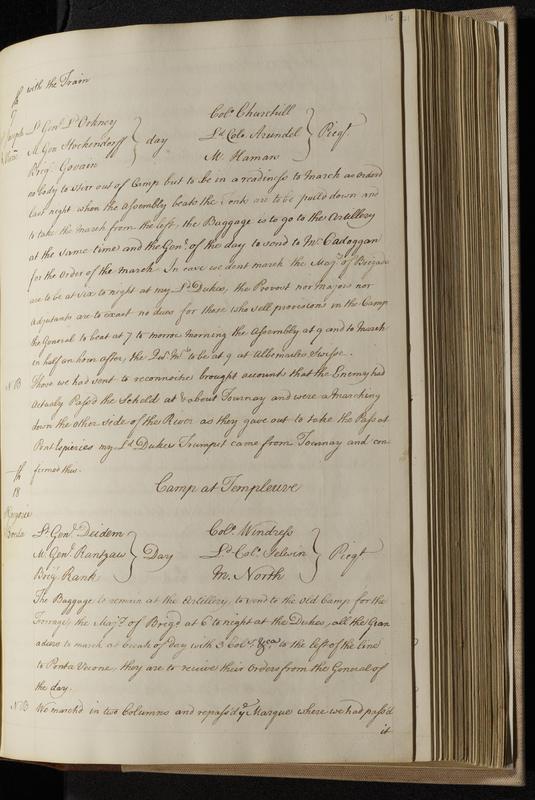 116 121
with the Train
th
Lt Genl Ld Orkney
M. Gen Hockendorff
Brigr Govain
day
Colo Churchill
Ld Colo Arundel
M. Haman
Piegt
no body to stir out of Camp but to be in a readiness to march as orderd
last night when the Assembly beats the Tents are to be pull'd down and
to take the march from the left, the Baggage is to go to the Artillery
at the same time and the Genl. of the day to send to Mr Cadoggan
for the order of the march. In case we dont march the Majrs of Brigade
are to be at six to night at my Ld Dukes, the Provost nor majors nor
Adjutants are to exact no dues for those who sell provisions in the Camp
the General to beat at 7 to morrow morning the Assembly at 9 and to March
in half an hour after, the Qr Mrs to be at 9 at Albemarles Swisse.
NB Those we had sent to reconnoitre brought account that the Enemy had
actualy Pass'd the Scheld at & about Tournay and were a Marching
down the other side of the River as they gave out to take the Pass at
Pont Espieries my Ld Dukes Trumpet came from Tournay and con
firmed this.
th
18
Camp at Templeuve
Lt Genl. Deidem
M. Genl Rantzaw
Brigr Rank
Day
Colo. Windress
Ld Colo. Selwin
M. North
Piegt
The Baggage to remain at the Artillery, to send to the Old Camp for the
Forrage, the Majrs of Brigs at 6 to night at the Dukes, all the Gran
adiers to march at break of day with 3 Colos. &ca to the left of the line
to Ponta Vecone, they are to recieve their Orders from the General of
the day.
NB We march'd in two Columns and repass'd ye Marque where we had pass'd
it